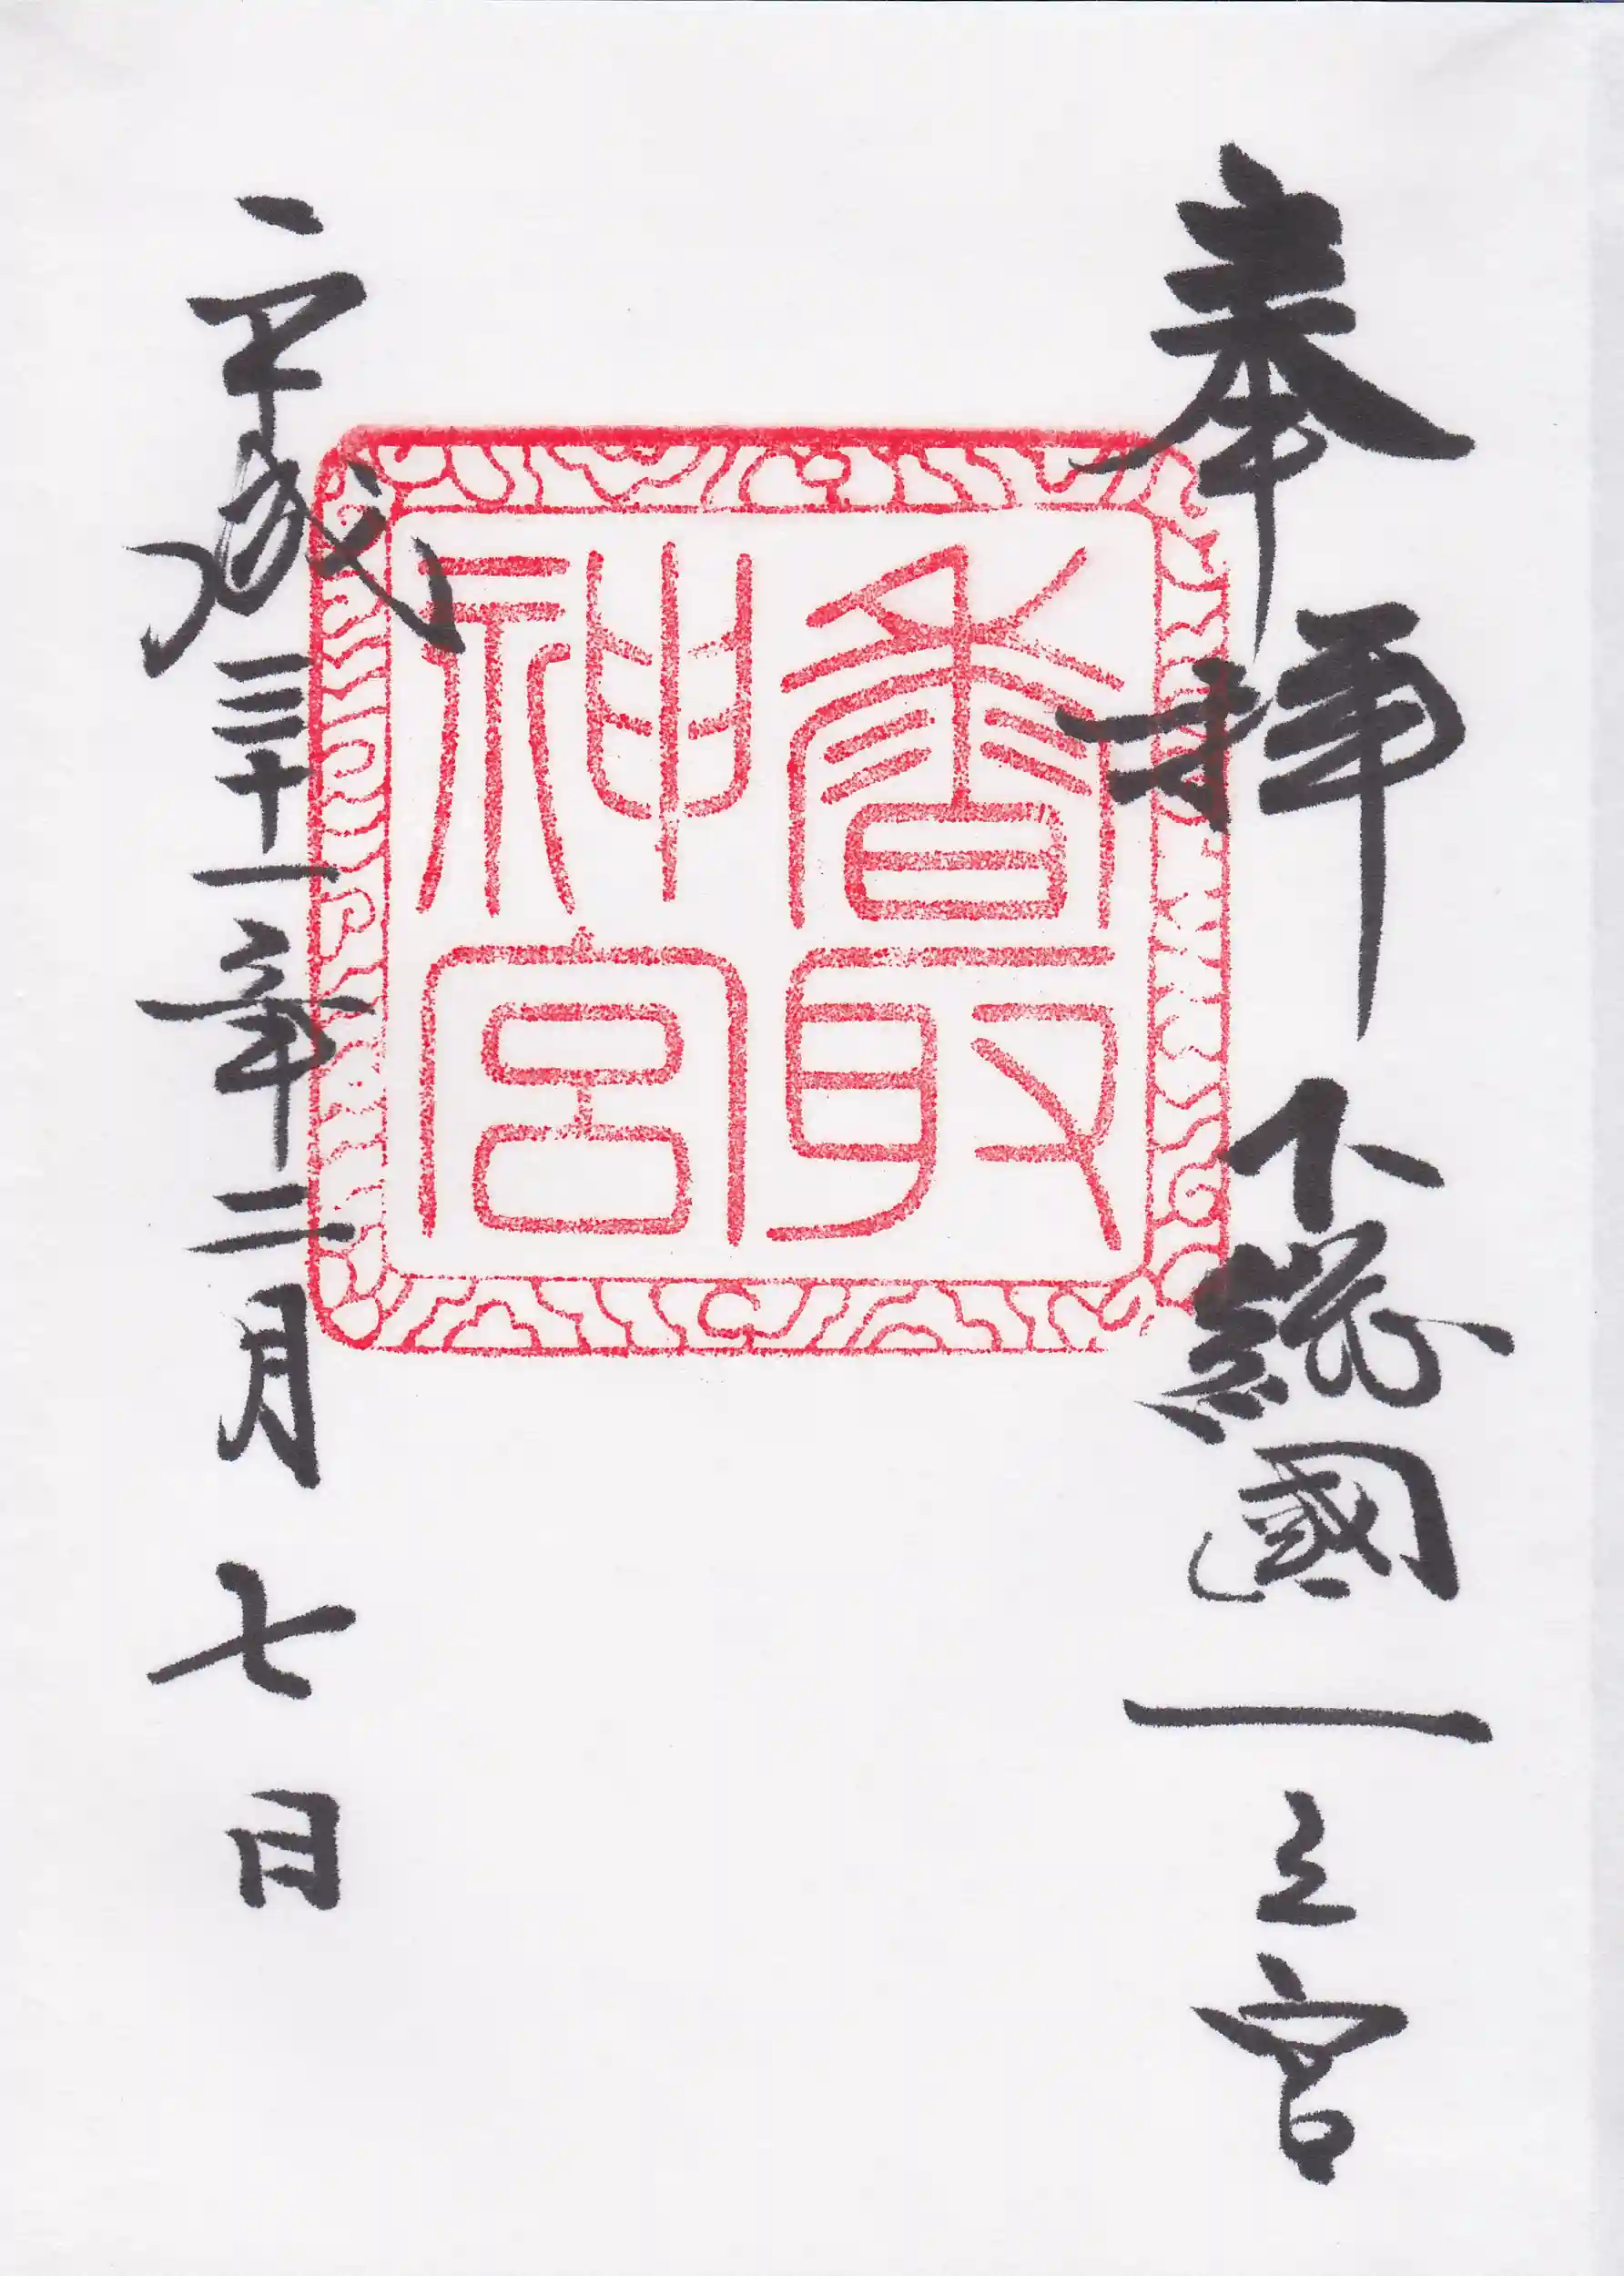 奉拝 下総國一之宮
香取
神宮
平成三十一年二月七日